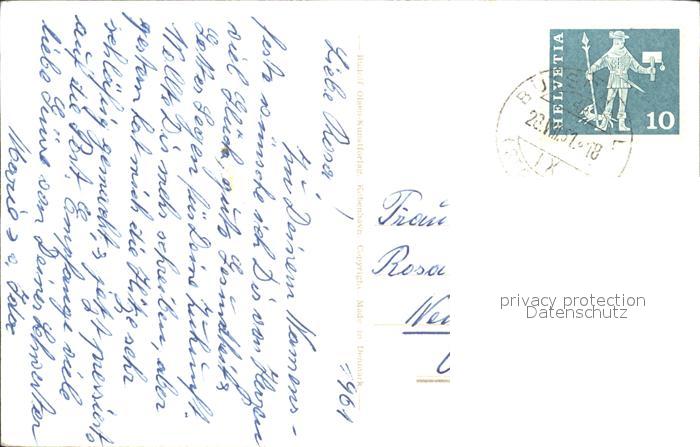 Liebe Rosa!
1961
Zu Deinem Namens-
feste wünsche ich Dir von Herzen
viel Glück, gute Gesundheit &
Gottes Segen für Deine Zukunft.
Wollte Dir mehr schreiben, aber
gestern hat mich die Hitze sehr
schläfrig gemacht & jetzt pressiert's
auf die Post. Empfange viele
liebe Grüsse von Deiner Schwester
Marie &
Rudolf Olsens Kunstforlag, København Copyright. Made in Denmark
HELVETIA
10
IX
Frau
Rosa
privacy protection
Datenschutz